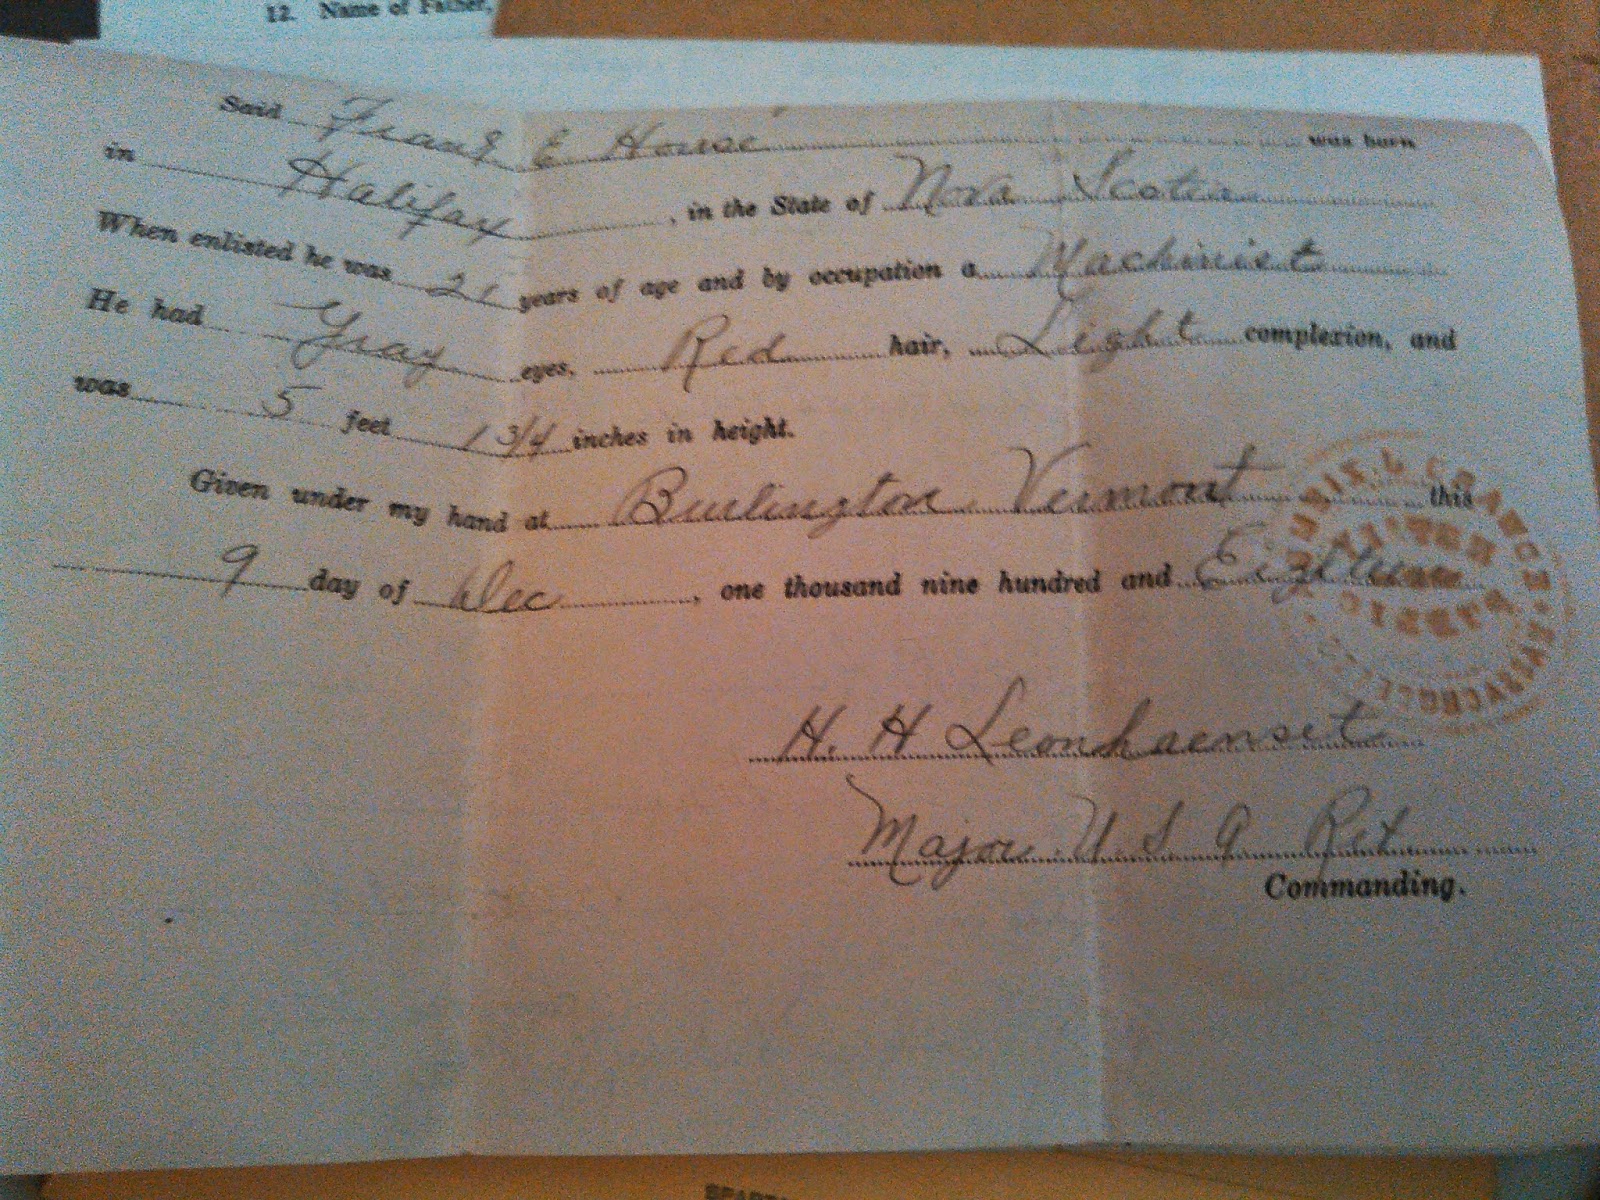 12. Name of Father,
Said Frank E House was born
in Halifax, in the State of Nova Scotia
When enlisted he was 21 years of age and by occupation a Machinist
He had Gray eyes, Red hair, Light complexion, and
was 5 feet 1 3/4 inches in height.
Given under my hand at Burlington Vermont this
9 day of Dec, one thousand nine hundred and Eighteen
H. H Leonhaenset
Major U S A Ret
Commanding.